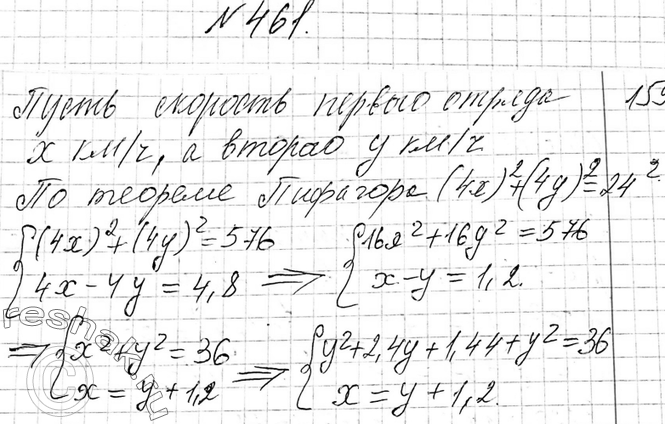 № 461.
Пусть скорость первого отряда
159
x км/ч, а второго y км/ч
По теореме Пифагора (4x)²+(4y)²=24²
{(4x)²+(4y)²=576
4x-4y=4,8 ⇒ {16x²+16y²=576
x-y=1,2.
⇒ {x²+y²=36
x=y+1,2 ⇒ {y²+2,4y+1,44+y²=36
x=y+1,2.
reshak.ru